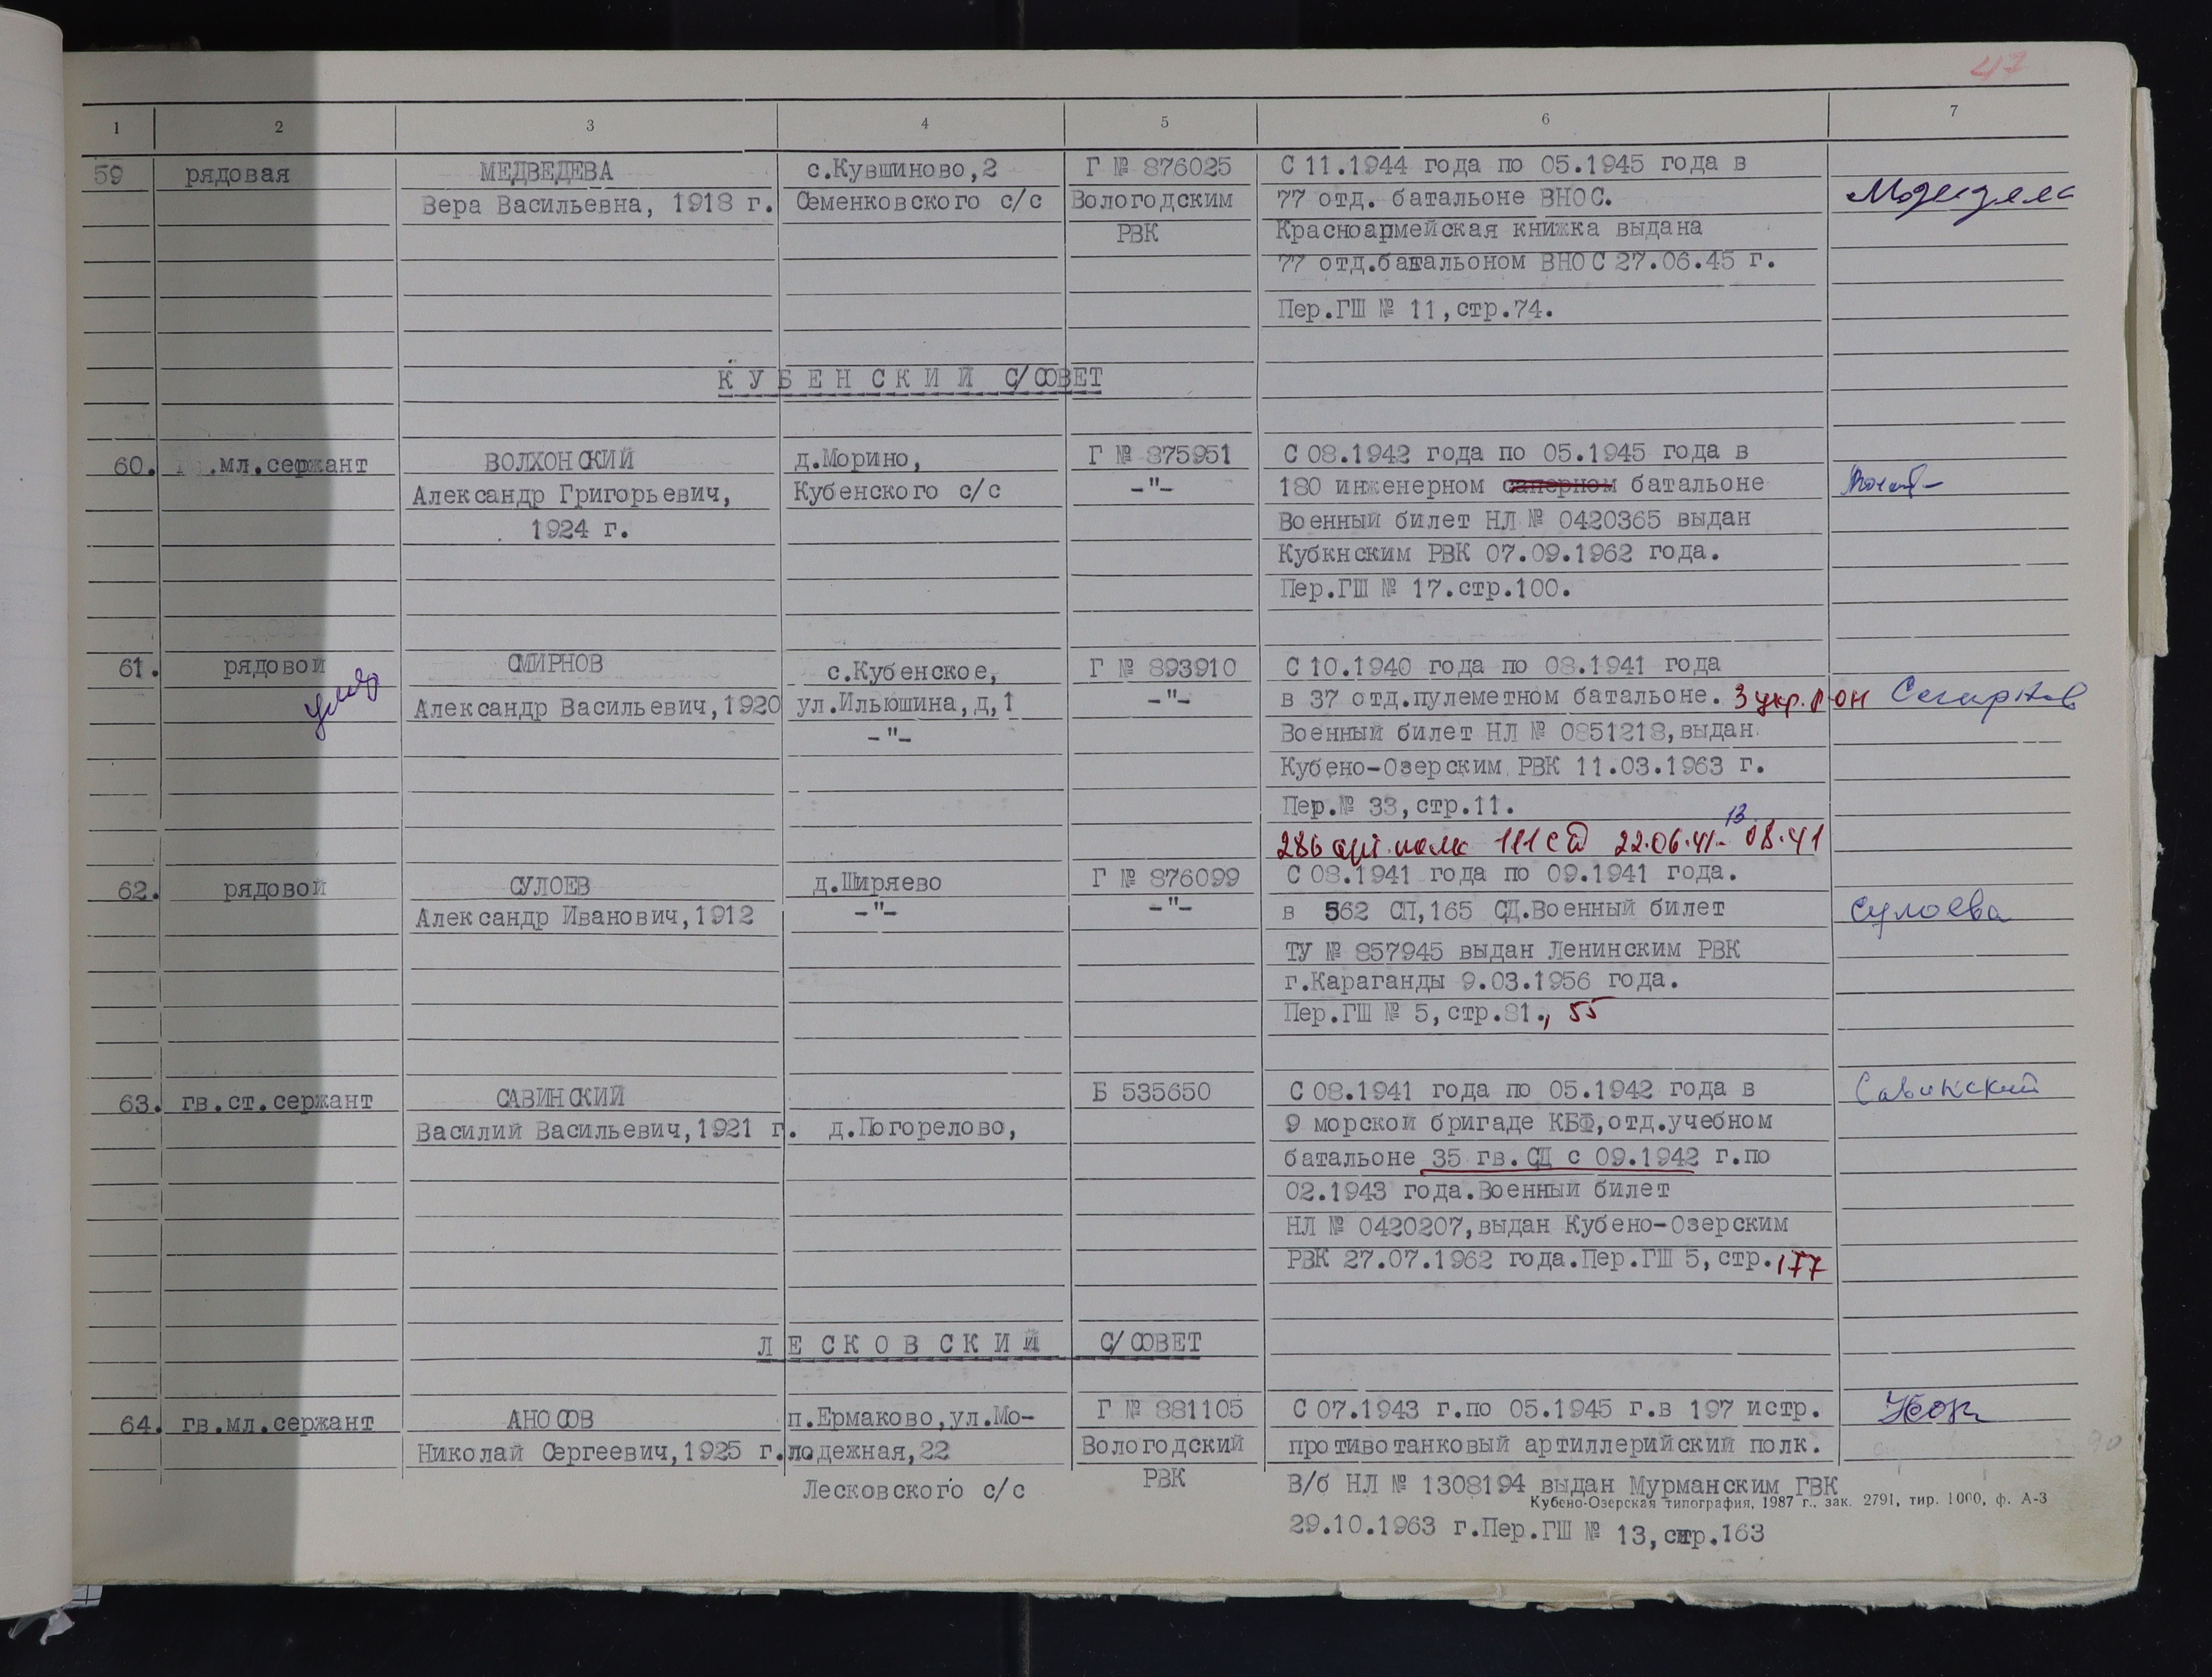 47
1 2 3 4 5 6 7
59 рядовая МЕДВЕДЕВА с.Кувшиново,2 Г № 876025 С 11.1944 года по 05.1945 года в
Вера Васильевна, 1918 г. Семенковского с/с Вологодским 77 отд. батальоне ВНОС.
РВК Красноармейская книжка выдана
77 отд.батальоном ВНОС 27.06.45 г.
Пер.ГШ № 11,стр.74.
КУБЕНСКИЙ С/СОВЕТ
60. .мл.сержант ВОЛХОНСКИЙ д.Морино, Г № 875951 С 08.1942 года по 05.1945 года в
Александр Григорьевич, Кубенского с/с -"- 180 инженерном саперном батальоне
1924 г. Военный билет НЛ № 0420365 выдан
Кубкнским РВК 07.09.1962 года.
Пер.ГШ № 17.стр.100.
61. рядовой СМИРНОВ с.Кубенское, Г № 893910 С 10.1940 года по 08.1941 года
умер Александр Васильевич,1920 ул.Ильюшина,д,1 -"- в 37 отд.пулеметном батальоне. 3 укр. р он Смирнов
-"- Военный билет НЛ № 0851218,выдан
Кубено-Озерским РВК 11.03.1963 г.
Пер.№ 33,стр.11.
13
286 арт. полк 111 сд 22.06.41- 08.41
62. рядовой СУЛОЕВ д.Ширяево Г № 876099 С 08.1941 года по 09.1941 года.
Александр Иванович,1912 -"- -"- в 562 СП,165 СД.Военный билет Сулоева
ТУ № 857945 выдан Ленинским РВК
г.Караганды 9.03.1956 года.
Пер.ГШ № 5,стр.81., 55
63. гв.ст.сержант САВИНСКИЙ Б 535650 С 08.1941 года по 05.1942 года в Савинский
Василий Васильевич,1921 г. д.Погорелово, 9 морской бригаде КБФ,отд.учебном
батальоне 35 гв.СД с 09.1942 г.по
02.1943 года.Военный билет
НЛ № 0420207,выдан Кубено-Озерским
РВК 27.07.1962 года.Пер.ГШ 5,стр.177
ЛЕСКОВСКИЙ С/СОВЕТ
64. гв.мл.сержант АНОСОВ п.Ермаково,ул.Мо- Г № 881105 С 07.1943 г.по 05.1945 г.в 197 истр.
Николай Сергеевич,1925 г. лодежная,22 Вологодский противотанковый артиллерийский полк.
Лесковского с/с РВК В/б НЛ № 1308194 выдан Мурманским ГВК
Кубено-Озерская типография, 1987 г., зак. 2791, тир. 1000, ф. А-3
29.10.1963 г.Пер.ГШ № 13,стр.163